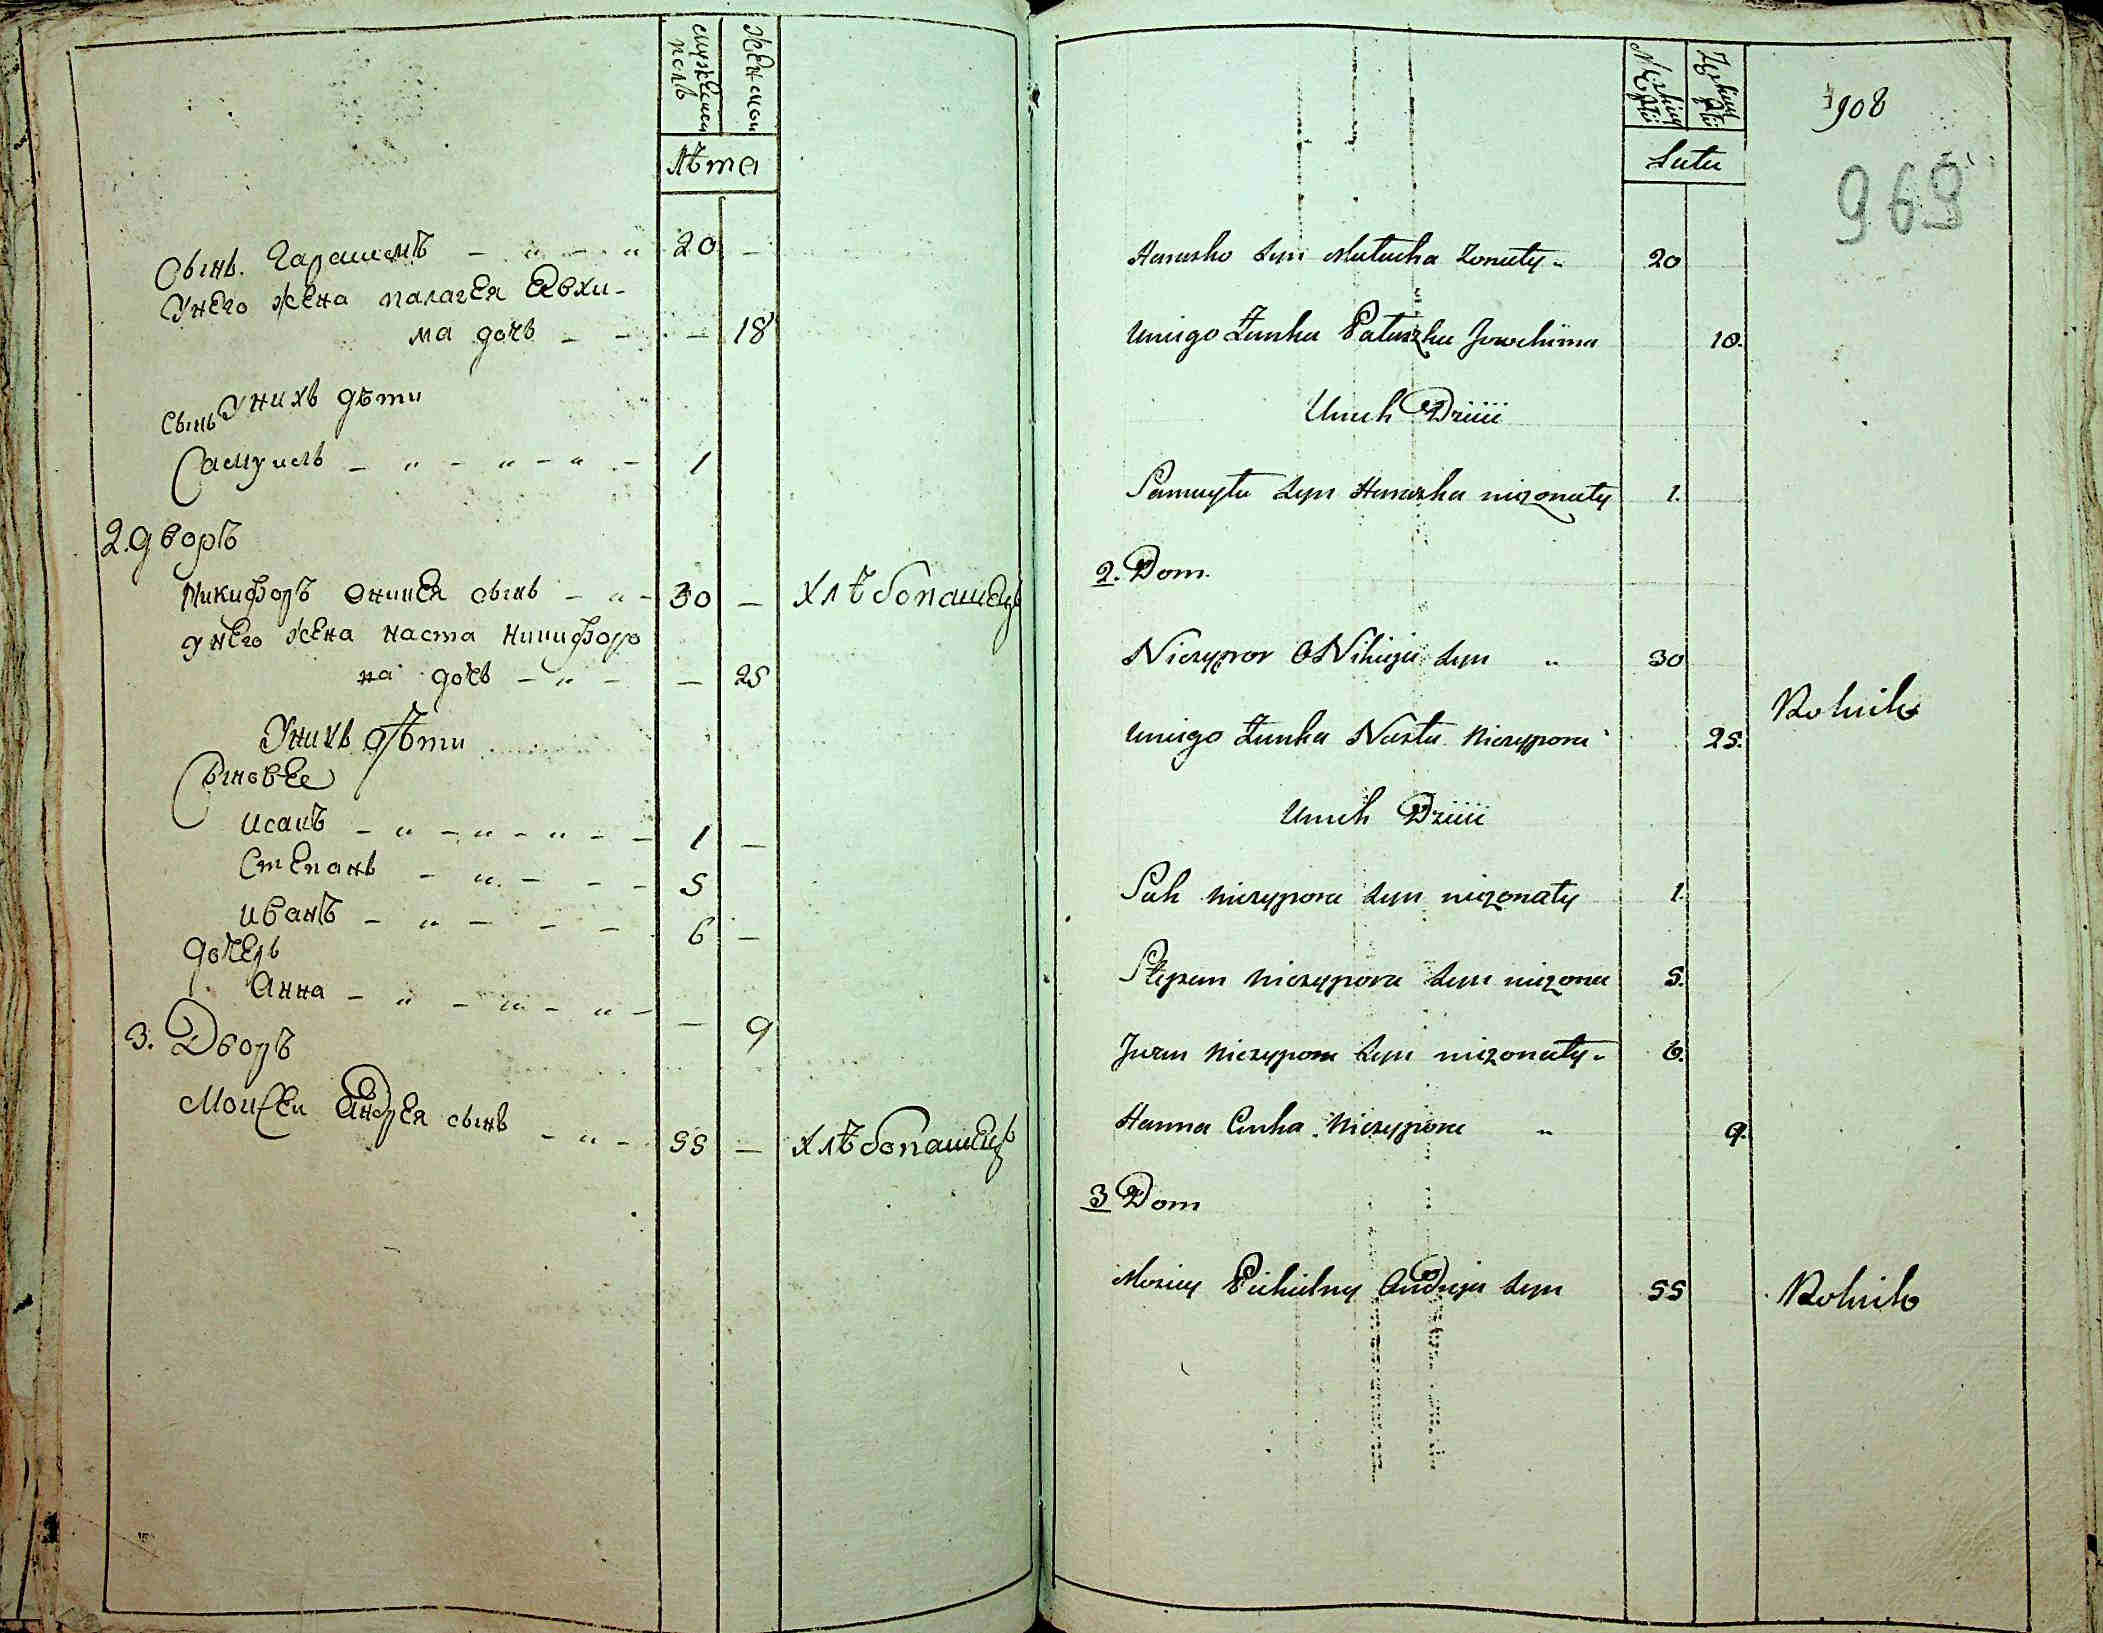 мужеска полъ
женскои
лѣта
Сынъ. Гарашимъ 20 —
Унего жена палагея Евхи-
ма дочь — 18
Унихъ дѣти
Сынъ
Самуилъ 1
2. дворъ
Никифоръ Оникея сынъ 30 — хлѣбопашецъ
унего жена наста Никифоро
на дочь — 25
Унихъ дѣти
Сыновее
Исакъ 1 —
Степанъ 5
Иванъ 6 —
дочерь
Анна — 9
3. Дворъ
Моисеи Андрея сынъ 55 — хлѣбопашецъ
908
969
Lata
Haraszko Syn Matucha żonaty 20
Uniego Żonka Pałaszka Jowchima 18.
Unich Dzieci
Samuyła Syn Haraszka nieżonaty 1.
2. Dom.
Niczypor ONikieja Syn " 30
Rolnik
Uniego Żonka Nasta Niczypora 25.
Unich Dzieci
Sak Niczypora Syn nieżonaty 1.
Stepan Niczypora Syn nieżona 5.
Jwan Niczypora Syn nieżonaty 6.
Hanna Curka Niczypora " 9.
3 Dom
Moziey Andreja Syn 55 Rolnik